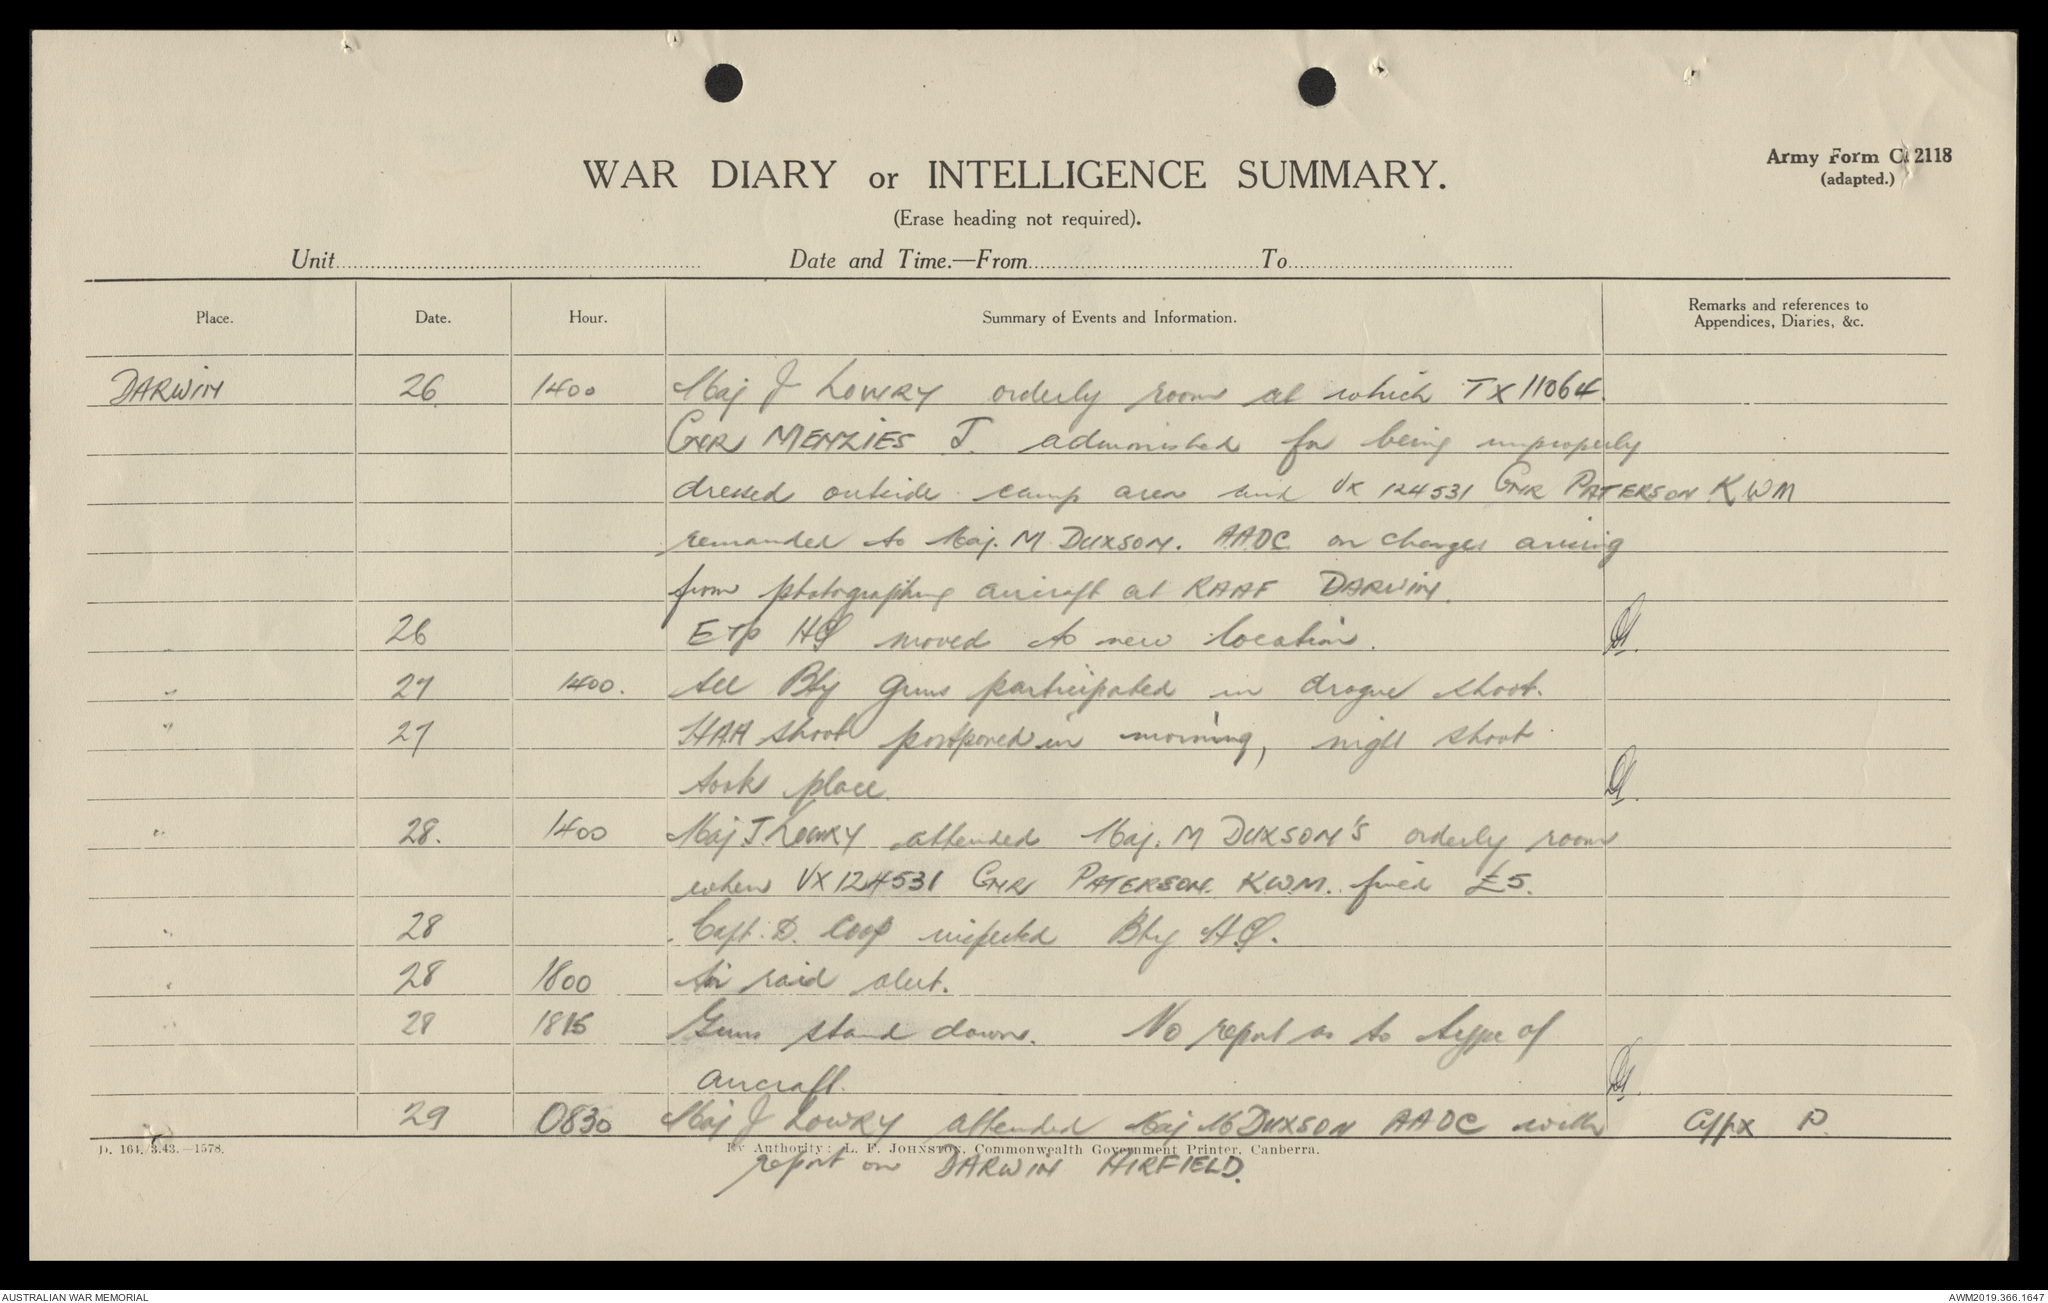 Army Form C. 2118
(adapted.)
WAR DIARY or INTELLIGENCE SUMMARY.
(Erase heading not required).
Unit Date and Time.—From To
Place. Date. Hour. Summary of Events and Information. Remarks and references to
Appendices, Diaries, &c.
DARWIN 26 1400 Maj J LOWRY orderly room at which TX 11064
GNR MENZIES J. admonished for being improperly
dressed outside camp area and VX 124531 GNR PATERSON KWM
remanded to Maj. M DUXSON. AADC on charges arising
from photographing aircraft at RAAF DARWIN.
26 E Tp HQ moved to new location.
" 27 1400. All Bty guns participated in drogue shoot.
" 27 HAA shoot postponed in morning, night shoot
took place.
" 28. 1400 Maj J. LOWRY attended Maj. M DUXSON'S orderly room
when VX124531 GNR PATERSON. K.W.M. fined £5.
" 28 Capt. D. Coop inspected Bty HQ.
" 28 1800 Air raid alert.
" 28 1815 Guns stand down. No report as to type of
aircraft.
29 0830 Maj J LOWRY attended Maj M DUXSON AADC with Appx D.
D. 164. 3.43.—1578. By Authority: L. F. JOHNSTON, Commonwealth Government Printer, Canberra.
report on DARWIN AIRFIELD.
AUSTRALIAN WAR MEMORIAL AWM2019.366.1647